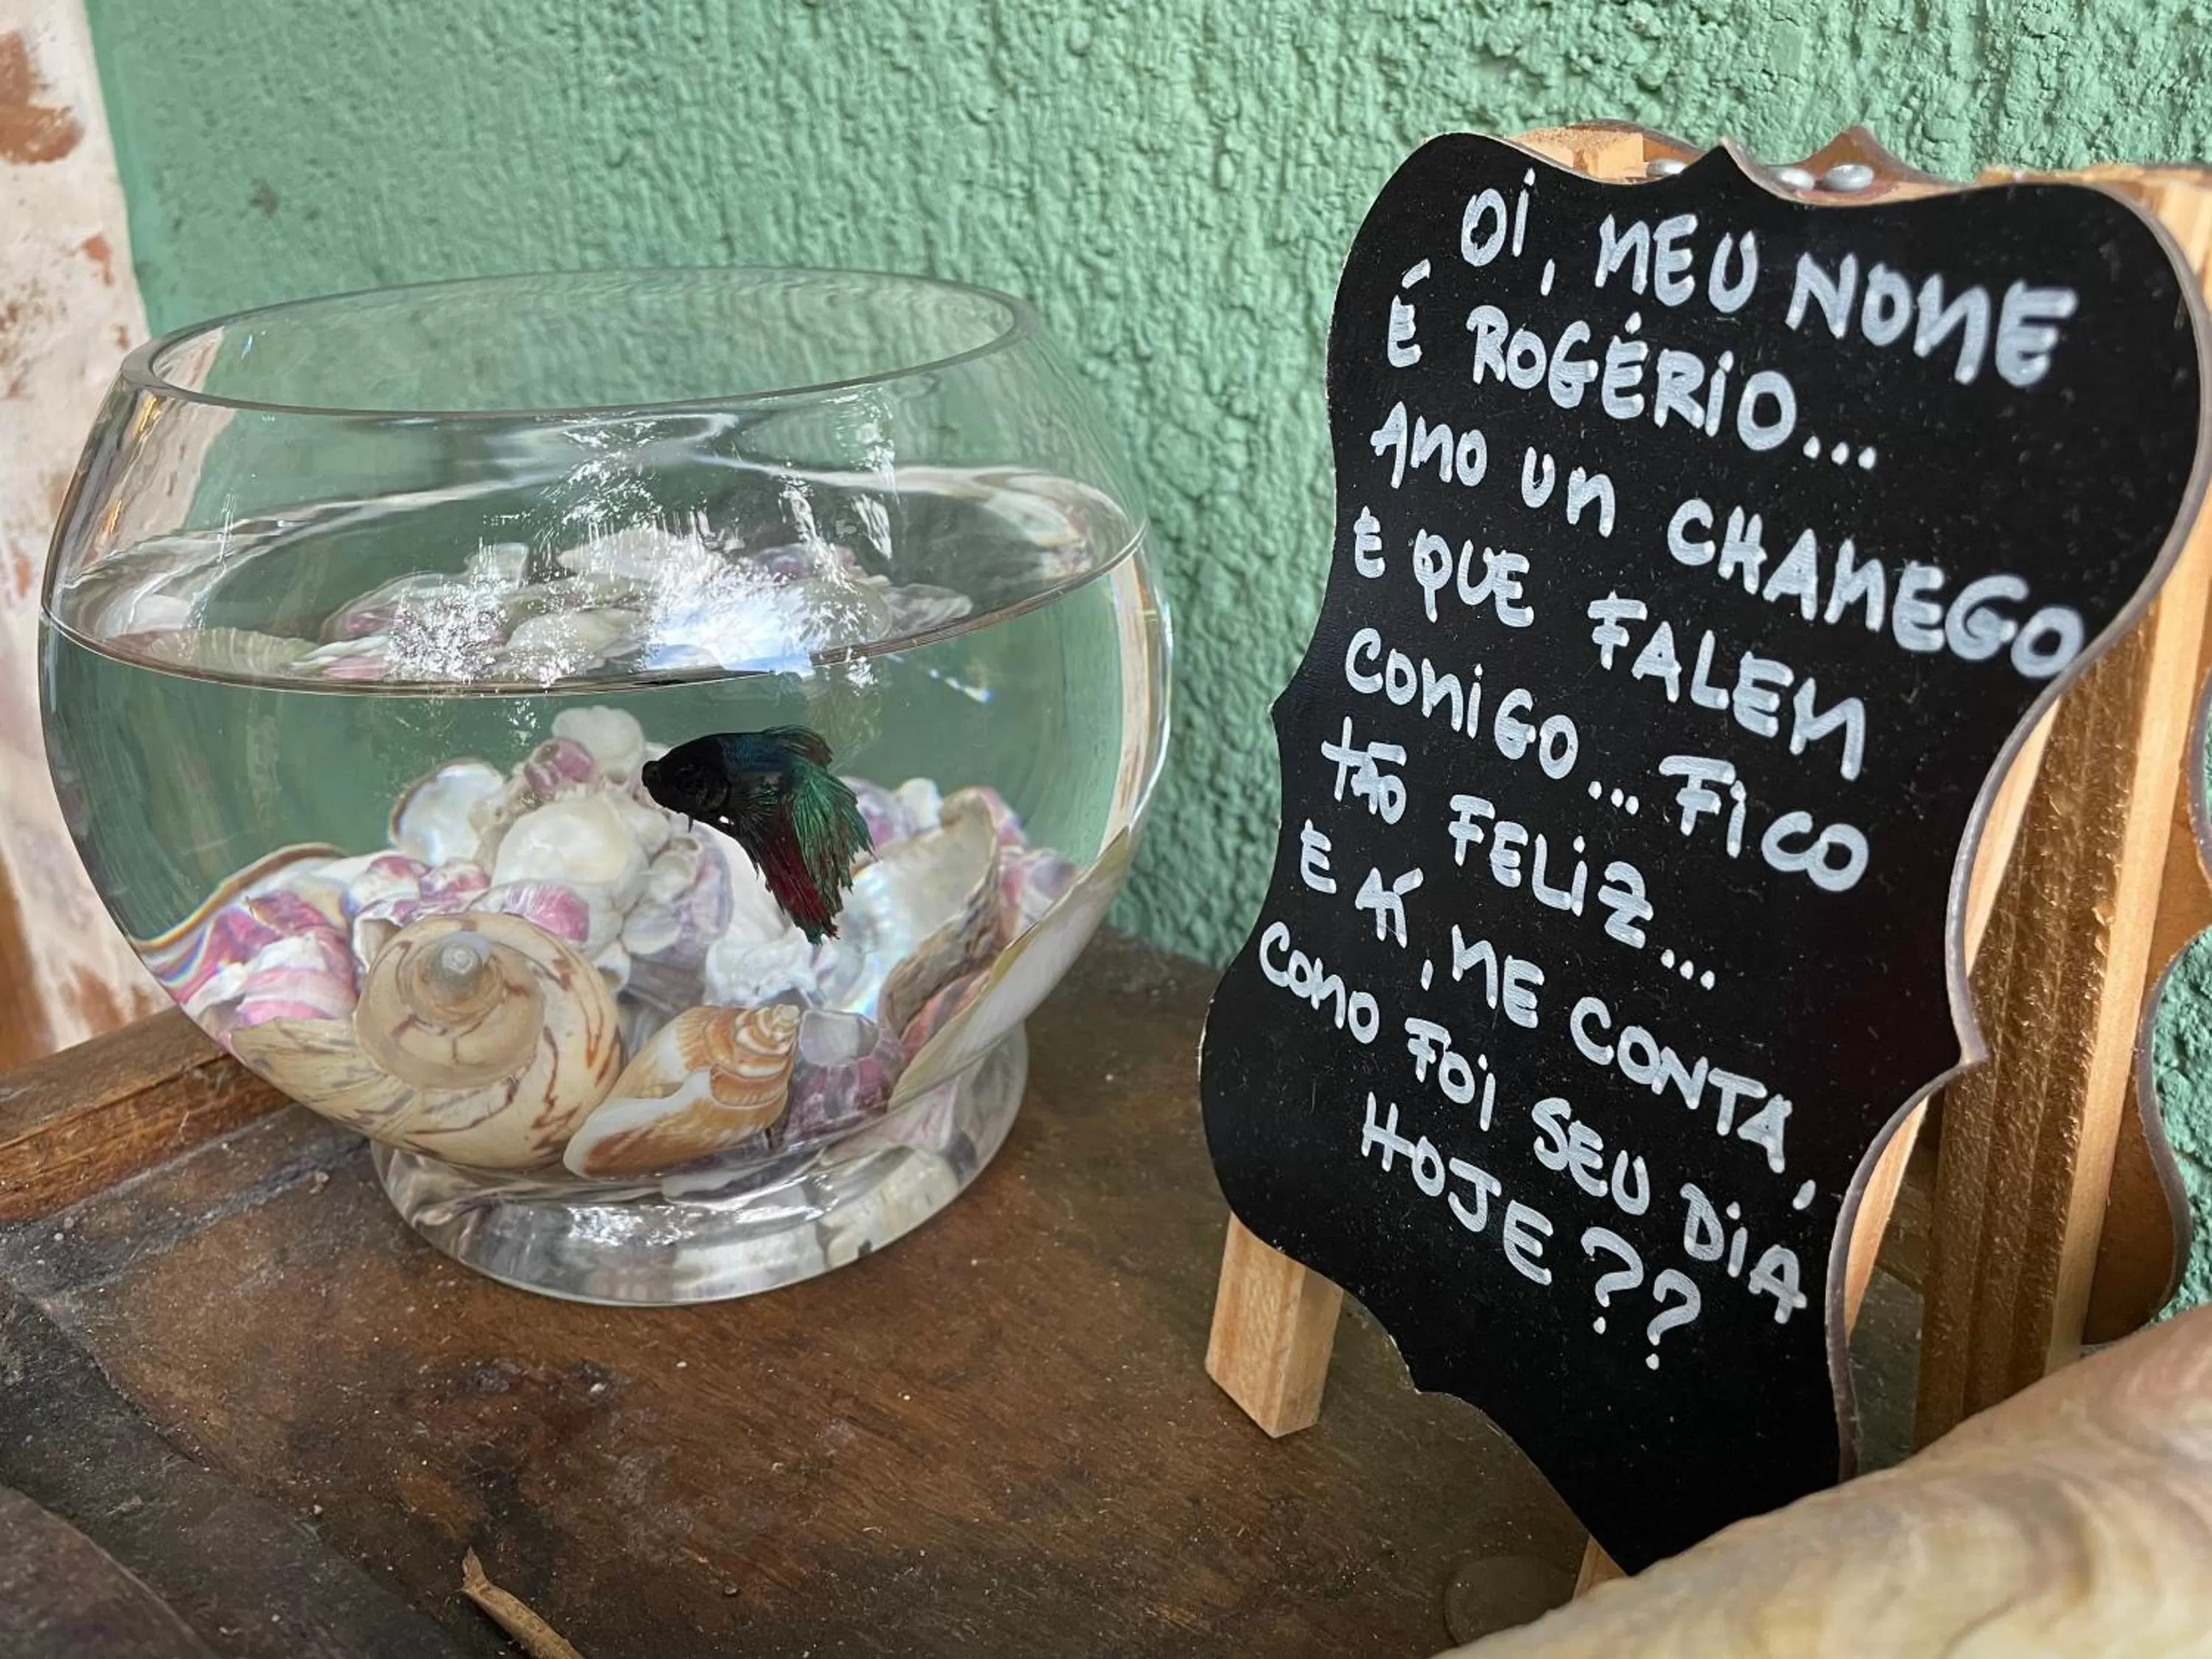 OI, MEU NOME
É ROGÉRIO...
AMO UM CHAMEGO
E QUE FALEM
COMIGO... FICO
TÃO FELIZ...
E AÍ, ME CONTA,
COMO FOI SEU DIA
HOJE??